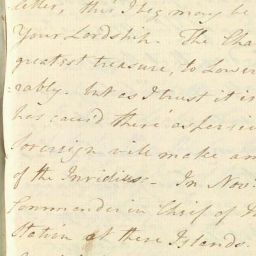 letter, this I beg may be
Your Lordship. The Cha
greatest treasure, to Lower
:ably. but as I trust it is
has caus'd these aspersi
Sovereign will make am
of the Invidius - In Nov:
Commander in Chief of
Station at these Islands.